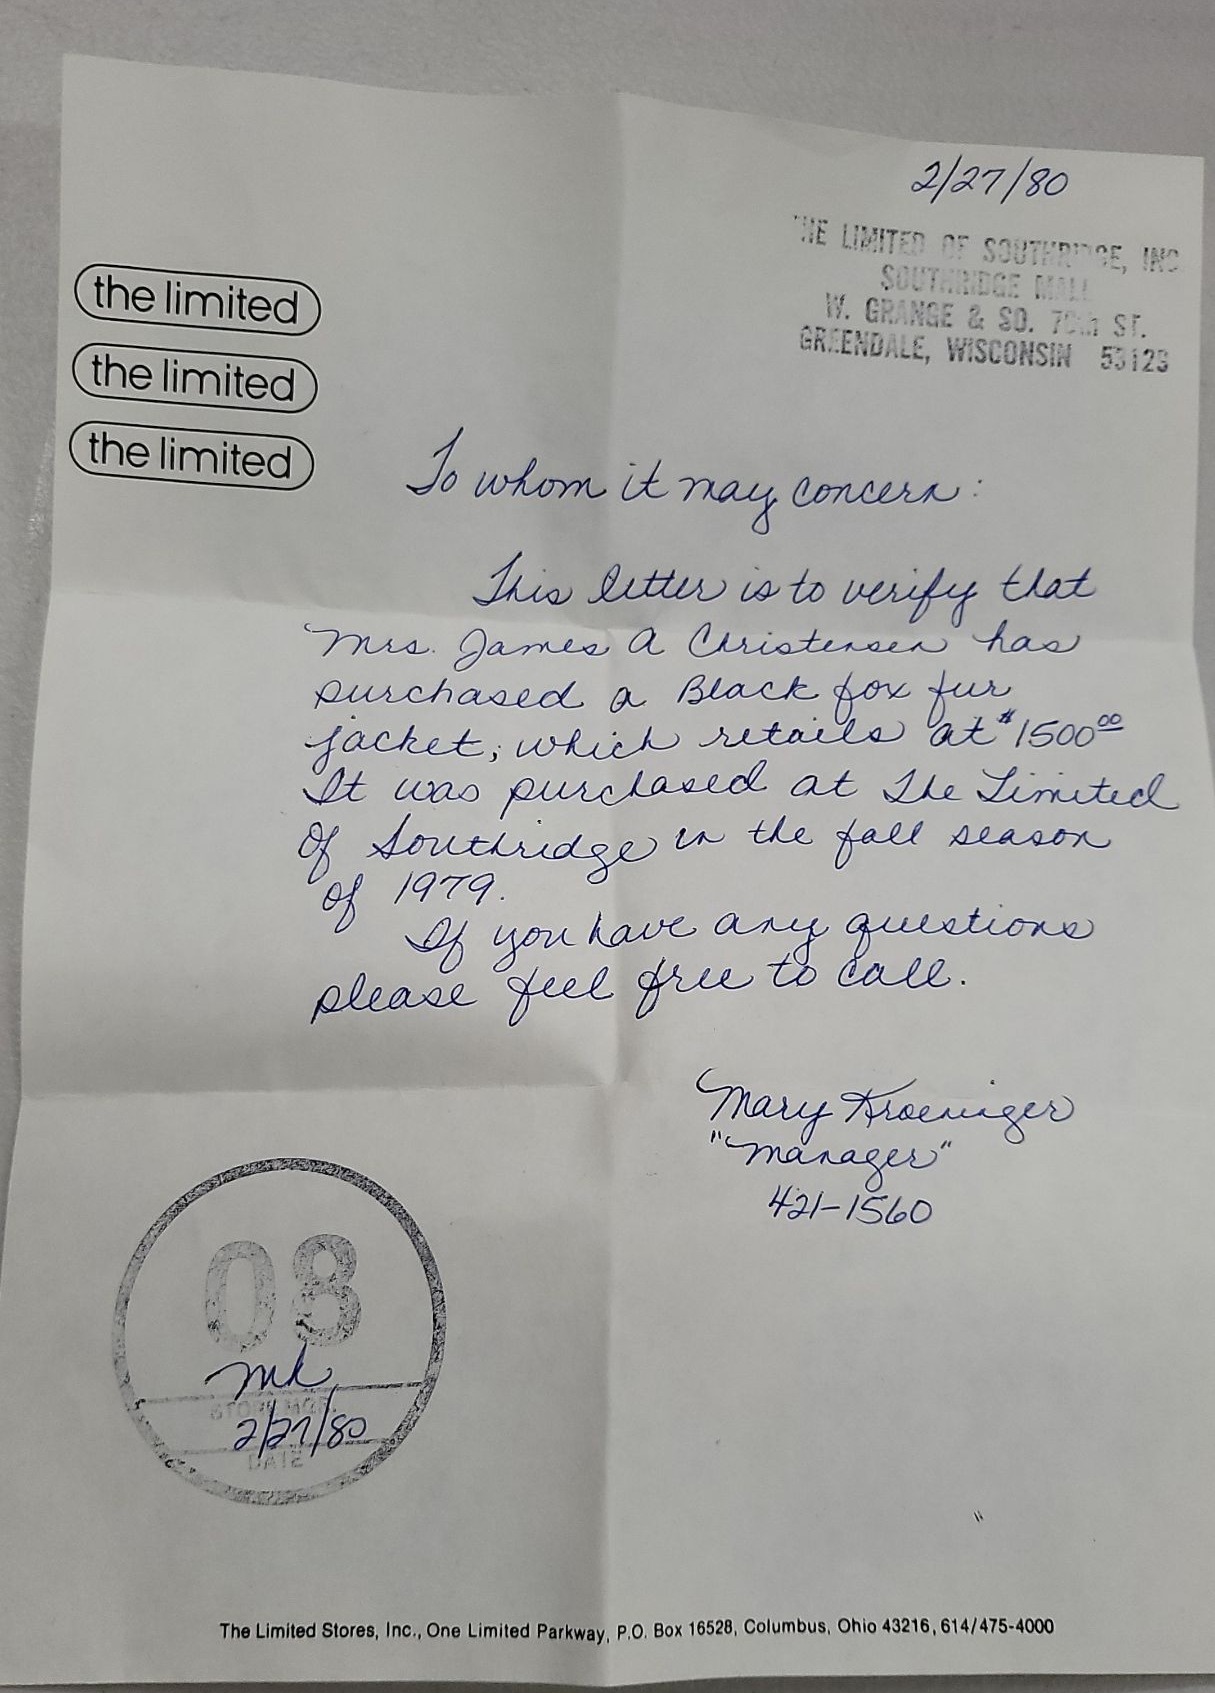 2/27/80
THE LIMITED OF SOUTHRIDGE, INC
SOUTHRIDGE MALL
W. GRANGE & SO. 76th ST.
GREENDALE, WISCONSIN 53129
the limited
the limited
the limited
To whom it may concern:
This letter is to verify that
Mrs. James A Christensen has
purchased a Black fox fur
jacket, which retails at $1500.00
It was purchased at The Limited
Of Southridge in the fall season
of 1979.
If you have any questions
please feel free to call.
Mary Kroeninger
"Manager"
421-1560
08
mk
STORE MGR.
2/27/80
DATE
The Limited Stores, Inc., One Limited Parkway, P.O. Box 16528, Columbus, Ohio 43216, 614/475-4000